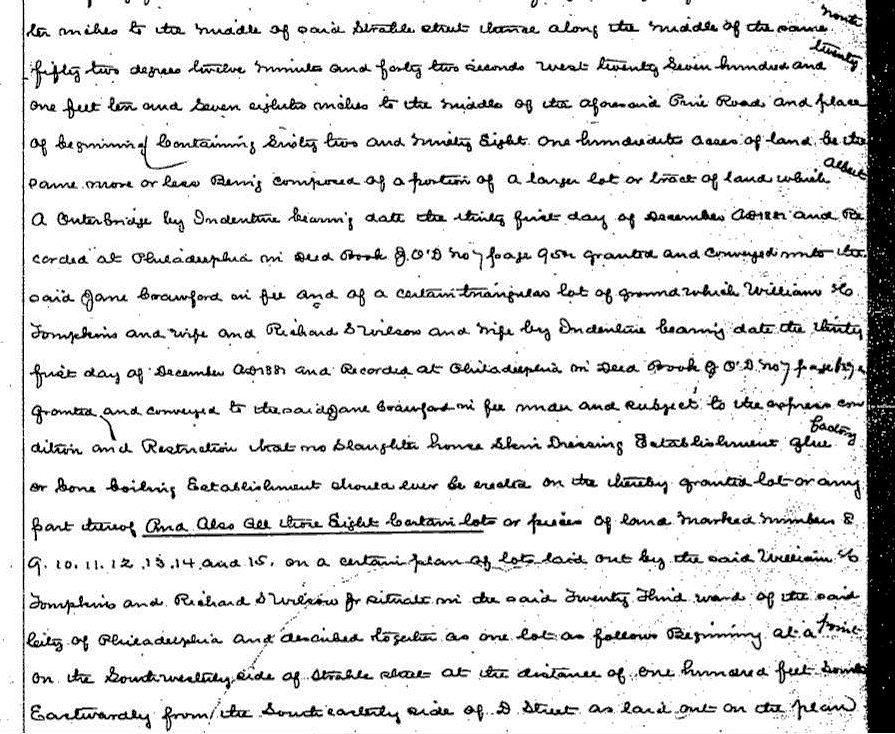 ten inches to the middle of said Strahle street thence along the middle of the same North
fifty two degrees twelve minutes and forty two seconds West twenty Seven hundred and twenty
one feet ten and Seven eighths inches to the middle of the aforesaid Pine Road and place
of beginning Containing Sixty two and Ninety Eight One hundredths acres of land be the
same more or less Being composed of a portion of a larger lot or tract of land which Albert
A Outerbridge by Indenture bearing date the thirty first day of December AD 1881 and Re
corded at Philadelphia in Deed Book J. O'D No 7 page granted and conveyed unto the
said Jane Crawford in fee and of a certain triangular lot of ground which William
Tompkins and wife and Richard D Wilson and wife by Indenture bearing date the thirty
first day of December AD 1881 and Recorded at Philadelphia in Deed Book J O'D. No 7 page
granted and conveyed to the said Jane Crawford in fee under and subject to the express con
dition and Restriction that no Slaughter house Skin Dressing Establishment glue factory
or bone boiling Establishment should ever be erected on the thereby granted lot or any
part thereof And Also All those Eight Certain lots or pieces of land Marked Numbers 8
9. 10. 11. 12. 13. 14 and 15. on a certain plan of lots laid out by the said William
Tompkins and Richard D Wilson Jr situate in the said Twenty Third ward of the said
City of Philadelphia and described together as one lot as follows Beginning at a point
on the Southwesterly side of Strahle street at the distance of One hundred feet South
Eastwardly from the South easterly side of D Street as laid out on the plan